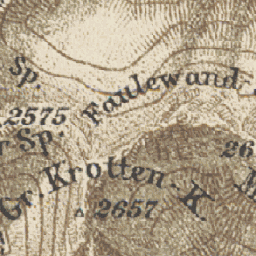 Sp.
Faulewand
2575
r Sp.
26
Gr. Krotten-K.
2657